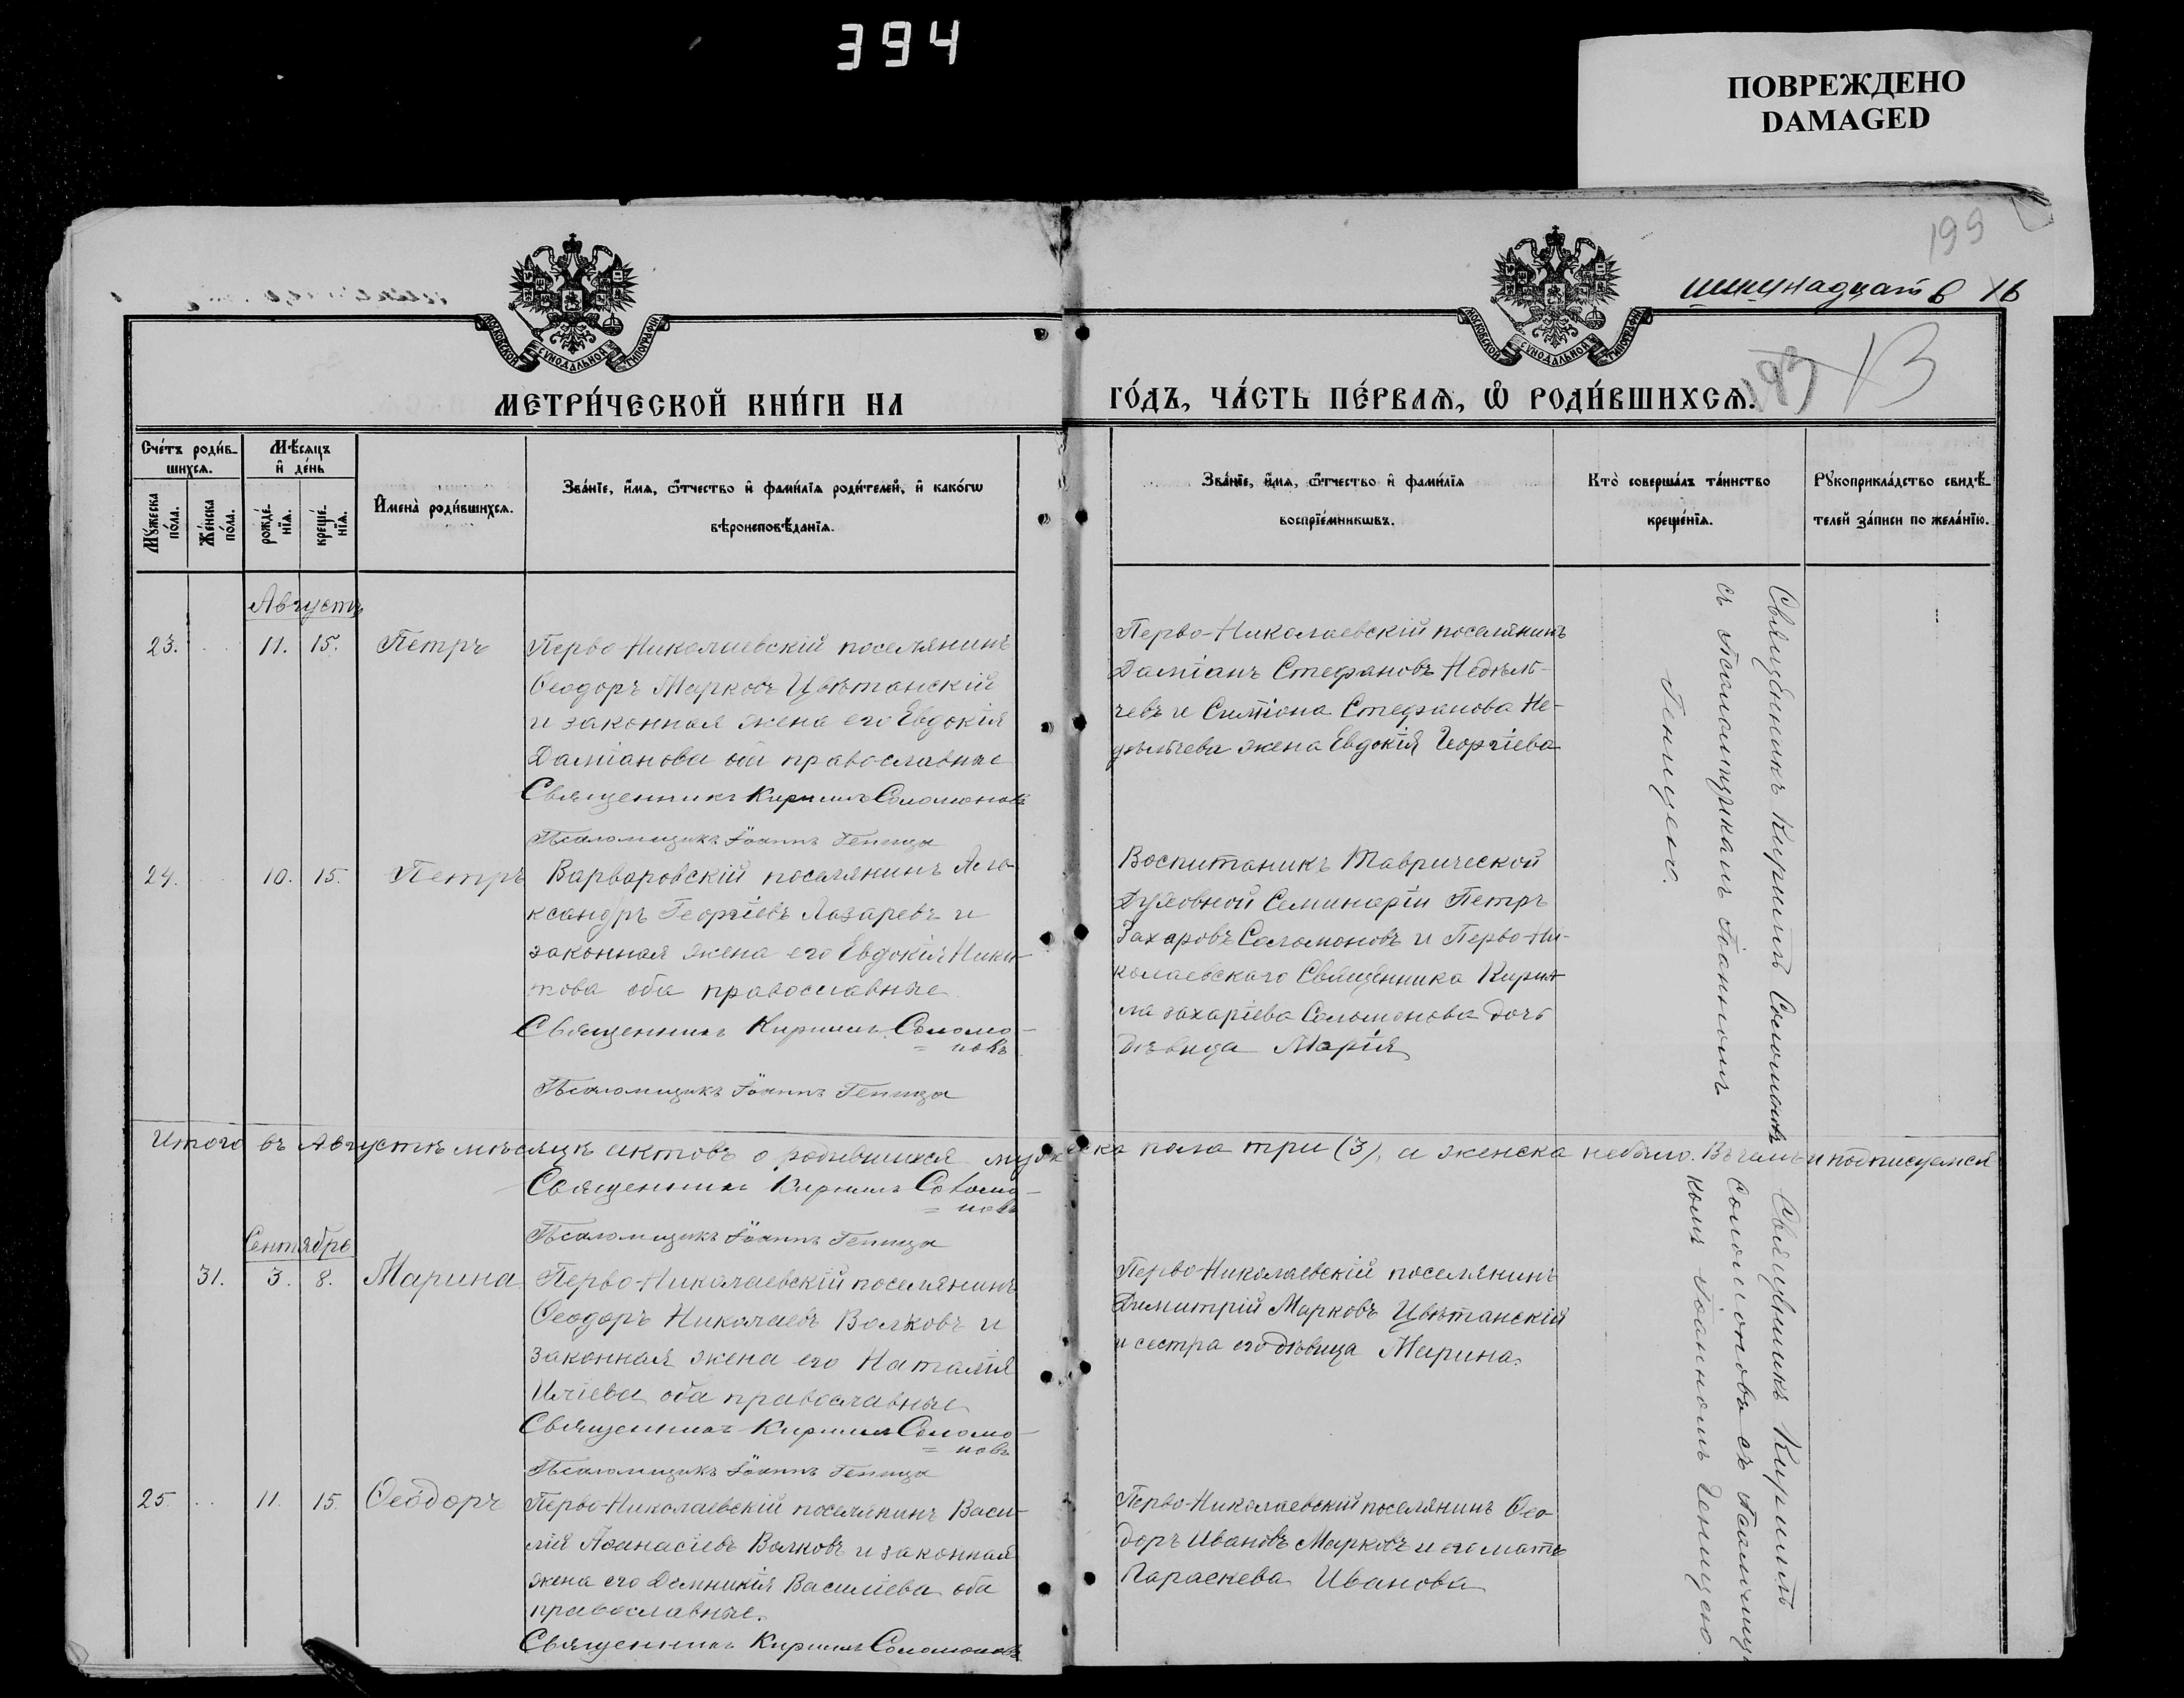 394
ПОВРЕЖДЕНО
DAMAGED
199
шестнадцать 16
МОСКОВСКОЙ СѴНОДАЛЬНОЙ ТИПОГРАФІИ
МОСКОВСКОЙ СѴНОДАЛЬНОЙ ТИПОГРАФІИ
193 13
МЕТРИ́ЧЕСКОЙ КНИ́ГИ НА
ГО́ДЪ, ЧА́СТЬ ПЕ́РВАѦ, Ѽ РОДИ́ВШИХСѦ.
Счетъ роди́в-
шихсѧ.
Мѣ́сяцъ
и҆ де́нь
Мꙋ́жеска
по́ла.
Же́нска
по́ла.
рожде́-
нїѧ.
креще́-
нїѧ.
И҆мена̀ роди́вшихсѧ.
Зва́нїе, и҆́мѧ, ѻ҆́тчество и҆ фами́лїѧ роди́телей, и҆ како́гѡ
вѣроисповѣ́данїѧ.
Зва́нїе, и҆́мѧ, ѻ҆́тчество и҆ фами́лїѧ
воспрїе́мникѡвъ.
Кто̀ соверша́лъ та́инство
креще́нїѧ.
Рꙋкоприкла́дство свидѣ́-
телей за́писи по жела́нїю.
Августъ
23. 11. 15. Петръ
Перво-Николаевскій поселянинъ
Ѳеодоръ Марковъ Цвѣтанскій
и законная жена его Евдокія
Даміанова оба православные
Священникъ Кириллъ Соломоновъ
Псаломщикъ Іоаннъ Геница
Перво-Николаевскій поселянинъ
Даміанъ Стефановъ Недѣль-
чевъ и Симіона Стефанова Не-
дѣльчева жена Евдокія Георгіева
24. 10. 15. Петръ
Варваровскій поселянинъ Але-
ксандръ Георгіевъ Лазаревъ и
законная жена его Евдокія Ники-
това оба православные
Священникъ Кириллъ Соломо-
новъ
Псаломщикъ Іоаннъ Геница
Воспитаникъ Таврической
Духовной Семинаріи Петръ
Захаровъ Соломоновъ и Перво-Ни-
колаевскаго Священника Кирил-
ла Захаріева Соломонова дочь
дѣвица Марія
Священникъ Кириллъ Соломоновъ
съ псаломщикомъ Іоанномъ
Геницею.
Итого въ Августѣ мѣсяцѣ актовъ о родившихся мужеска пола три (3), а женска небыло. Въ чемъ и подписуемся
Священникъ Кириллъ Соломо-
новъ
Псаломщикъ Іоаннъ Геница
Сентябрь
31. 3. 8. Марина
Перво-Николаевскій поселянинъ
Ѳеодоръ Николаевъ Волковъ и
законная жена его Наталія
Иліева оба православные
Священникъ Кириллъ Соломо-
новъ
Псаломщикъ Іоаннъ Геница
Перво-Николаевскій поселянинъ
Димитрій Марковъ Цвѣтанскій
и сестра его дѣвица Марина.
25. 11. 15. Ѳеодоръ
Перво-Николаевскій поселянинъ Васи-
лій Аѳанасіевъ Волковъ и законная
жена его Домникія Василіева оба
православные.
Священникъ Кириллъ Соломоновъ
Перво-Николаевскій поселянинъ Ѳео-
доръ Ивановъ Марковъ и его мать
Параскева Иванова
Священникъ Кириллъ
Соломоновъ съ Псаломщи-
комъ Іоанномъ Геницею.